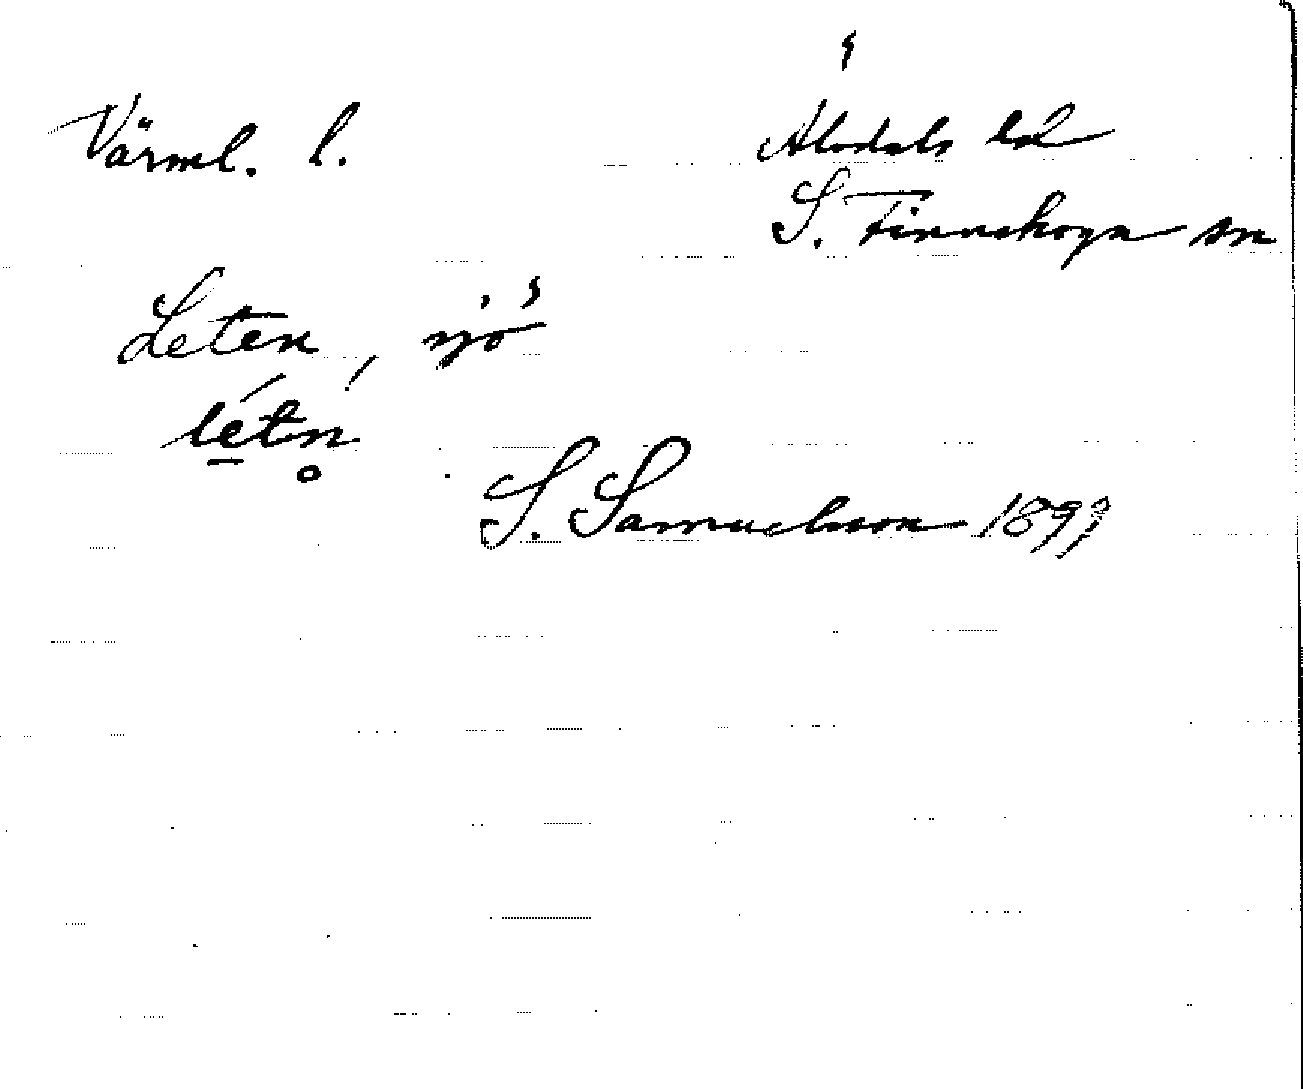 Värml. l.
Älvdals hd
S. Finnskoga sn
Leten, sjö
létn̥
S. Samuelsson 1897